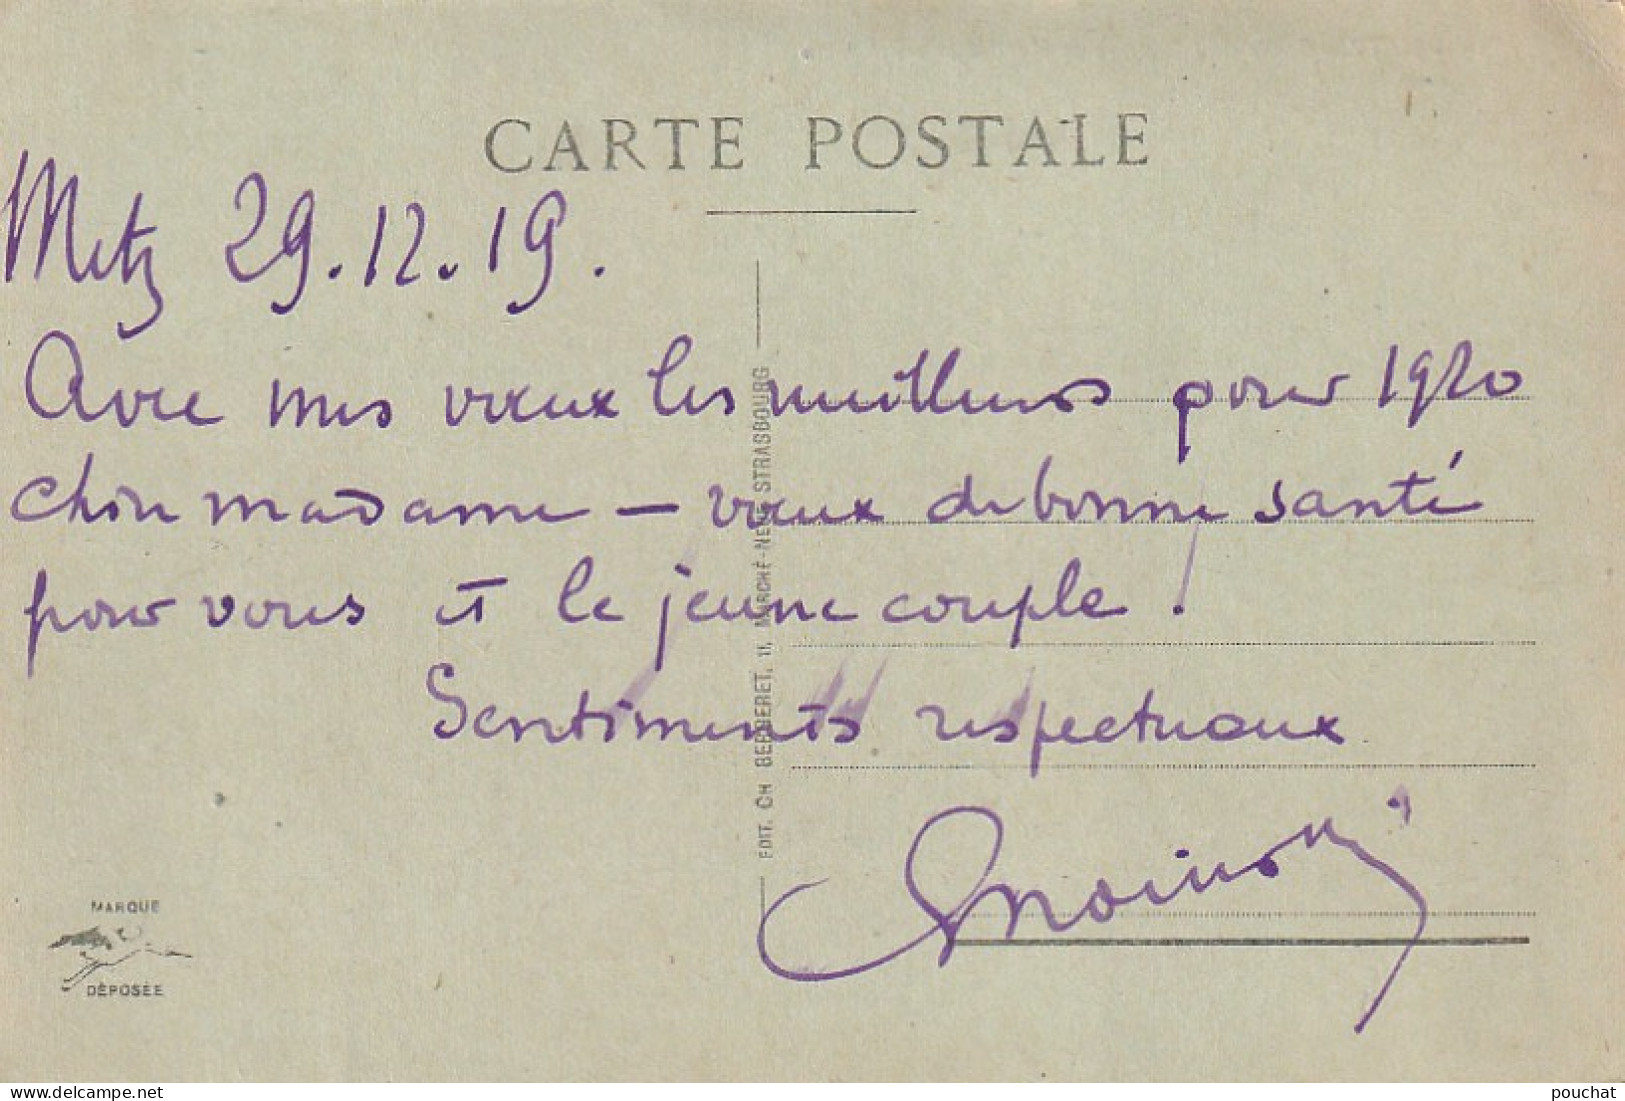 CARTE POSTALE
Metz 29.12.19.
Avec mes vœux les meilleurs pour 1920
chère madame — vœux de bonne santé
pour vous et le jeune couple !
Sentiments respectueux
EDIT. CH BERGERET, 11, MARCHÉ-NEUF STRASBOURG
MARQUE
DÉPOSÉE
www.delcampe.net
pouchat